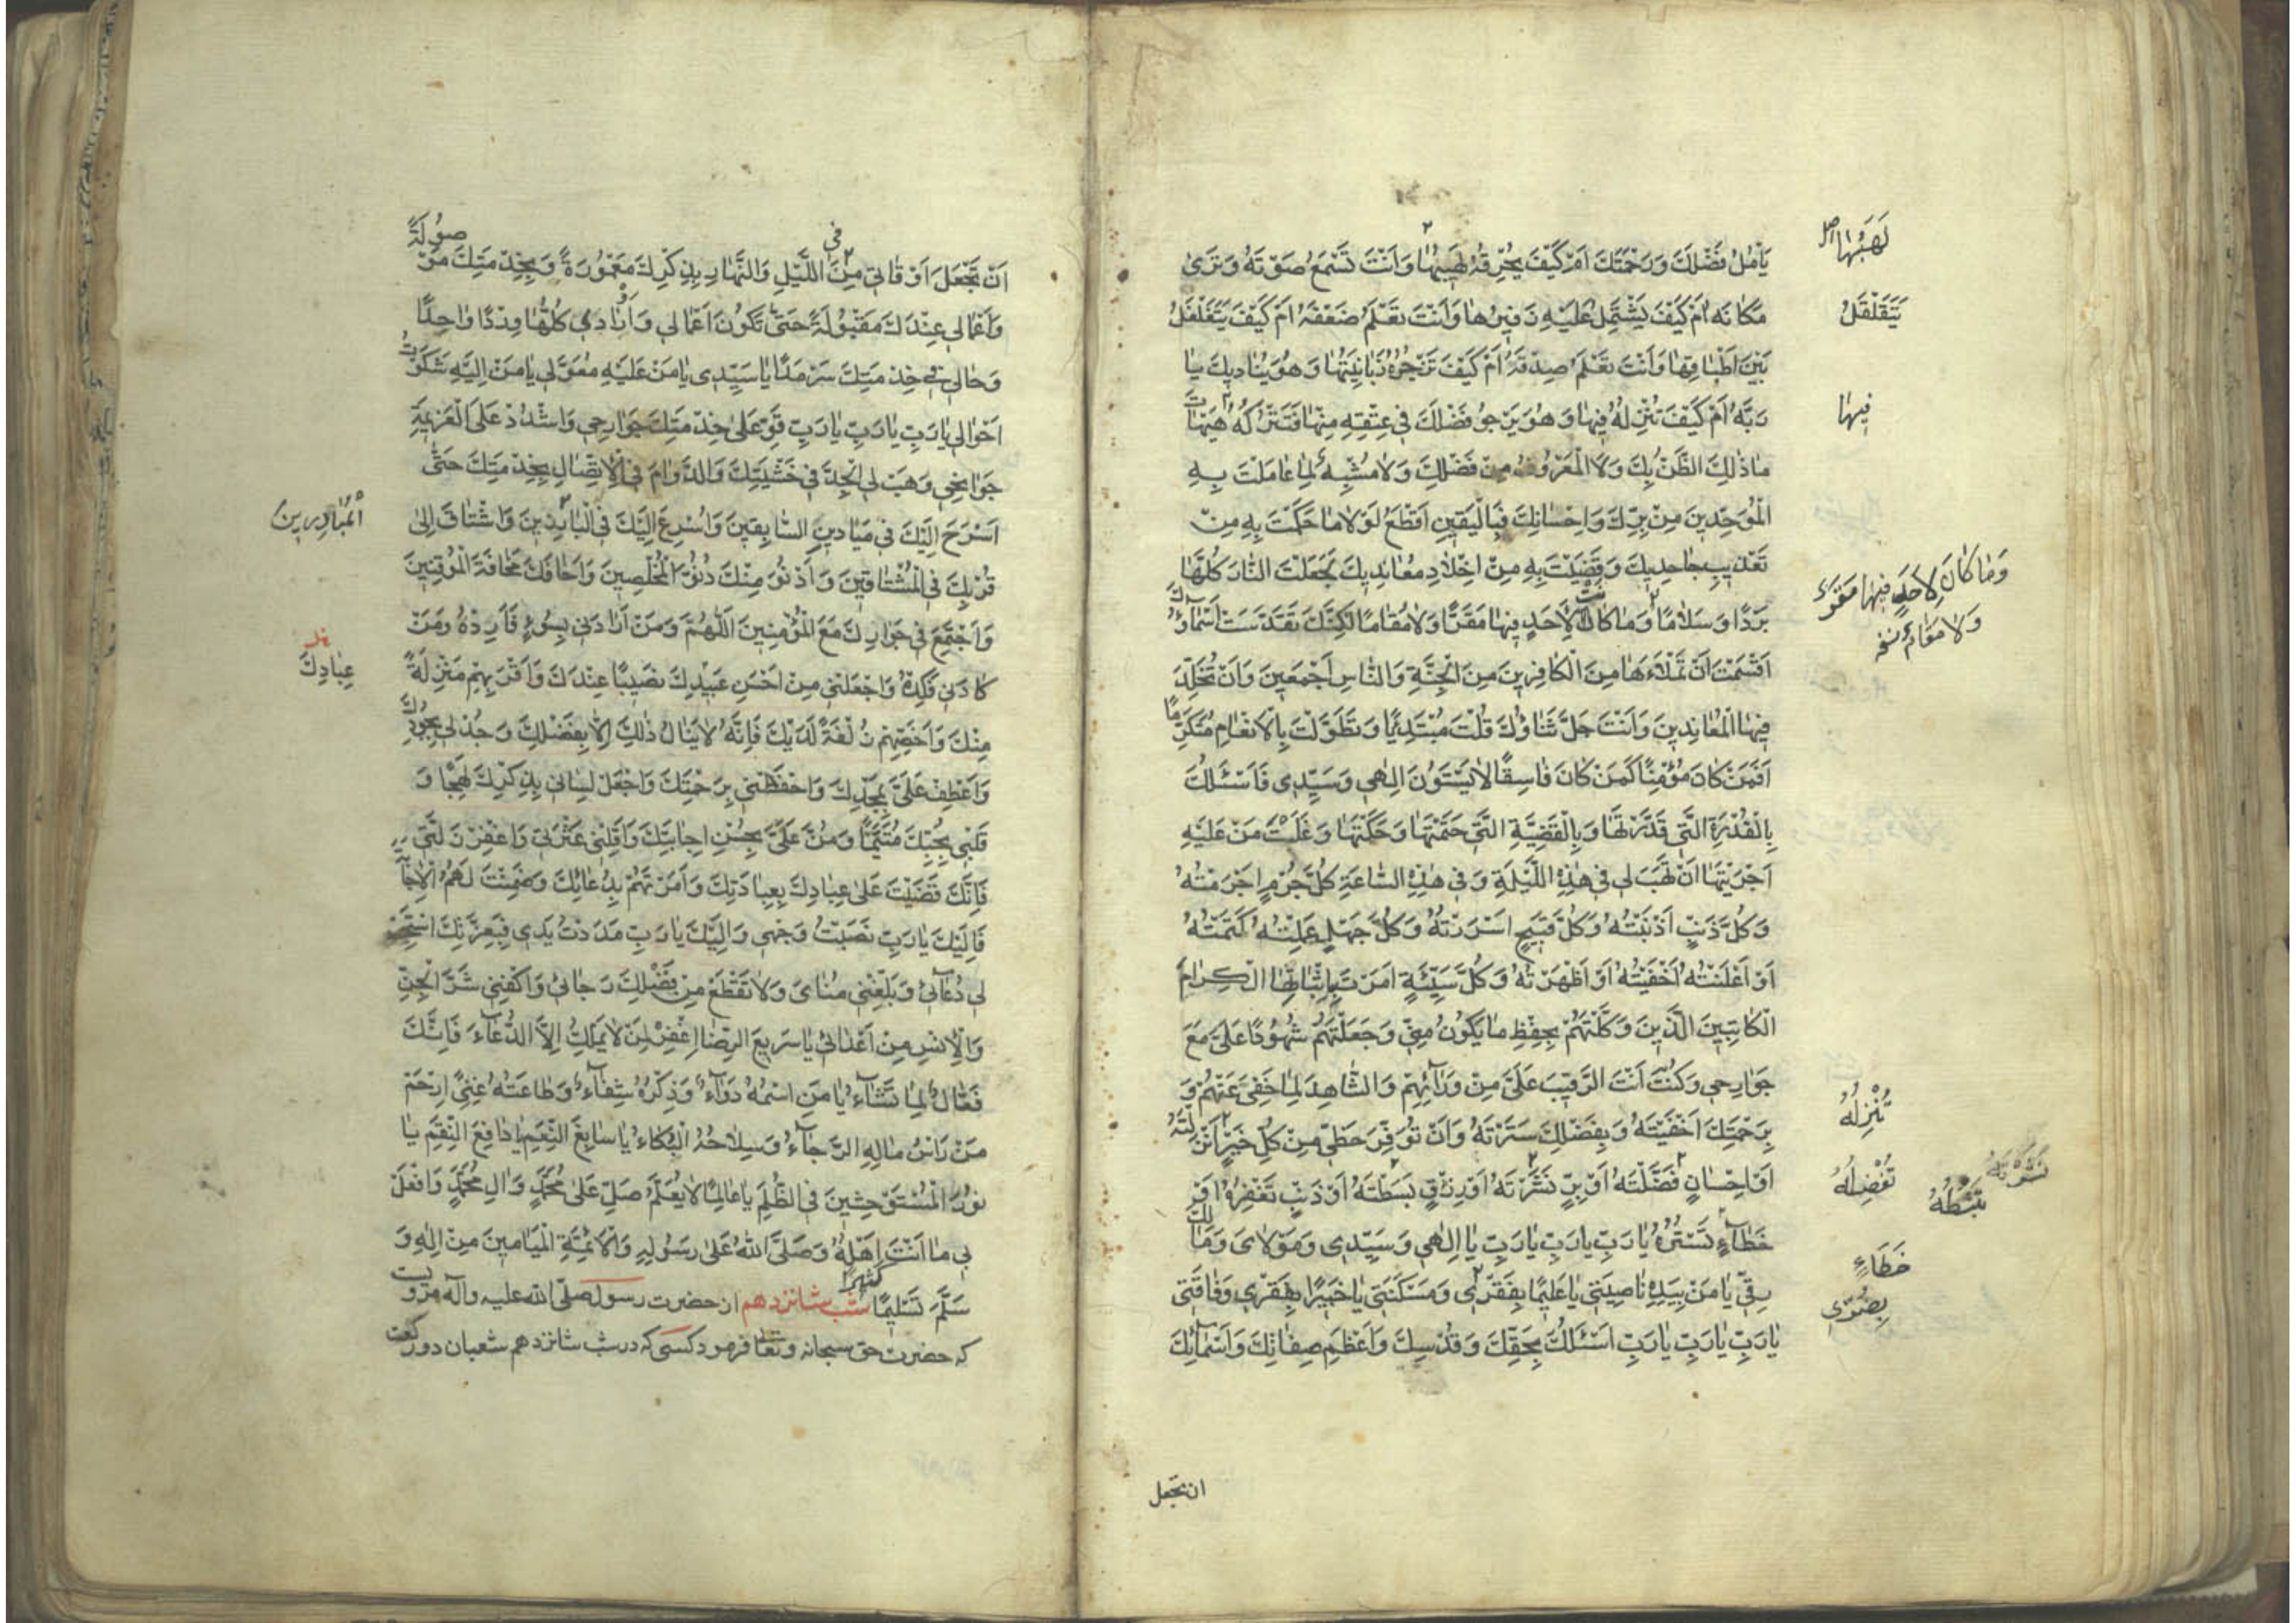 يَأْمُلُ فَضْلَكَ وَرَحْمَتَكَ اَمْ كَيْفَ يُحْرِقُهُ لَهِيبُهَا وَاَنْتَ تَسْمَعُ صَوْتَهُ وَتَرٰى
مَكَانَهُ اَمْ كَيْفَ يَشْتَمِلُ عَلَيْهِ زَفِيرُهَا وَاَنْتَ تَعْلَمُ ضَعْفَهُ اَمْ كَيْفَ يَتَغَلْغَلُ
بَيْنَ اَطْبَاقِهَا وَاَنْتَ تَعْلَمُ صِدْقَهُ اَمْ كَيْفَ تَزْجُرُهُ زَبَانِيَتُهَا وَهُوَ يُنَادِيكَ يَا
رَبَّهُ اَمْ كَيْفَ تُنْزِلُهُ فِيهَا وَهُوَ يَرْجُو فَضْلَكَ فِي عِتْقِهِ مِنْهَا فَتَتْرُكَهُ هَيْهَاتَ
مَا ذٰلِكَ الظَّنُّ بِكَ وَلَا الْمَعْرُوفُ مِنْ فَضْلِكَ وَلَا مُشْبِهٌ لِمَا عَامَلْتَ بِهِ
الْمُوَحِّدِينَ مِنْ بِرِّكَ وَاِحْسَانِكَ فَبِالْيَقِينِ اَقْطَعُ لَوْلَا مَا حَكَمْتَ بِهِ مِنْ
تَعْذِيبِ جَاحِدِيكَ وَقَضَيْتَ بِهِ مِنْ اِخْلَادِ مُعَانِدِيكَ لَجَعَلْتَ النَّارَ كُلَّهَا
بَرْدًا وَسَلَامًا وَمَا كَانَ لِاَحَدٍ فِيهَا مَقَرًّا وَلَا مُقَامًا لٰكِنَّكَ تَقَدَّسَتْ اَسْمَاؤُكَ
اَقْسَمْتَ اَنْ تَمْلَأَهَا مِنَ الْكَافِرِينَ مِنَ الْجِنَّةِ وَالنَّاسِ اَجْمَعِينَ وَاَنْ تُخَلِّدَ
فِيهَا الْمُعَانِدِينَ وَاَنْتَ جَلَّ ثَنَاؤُكَ قُلْتَ مُبْتَدِئًا وَتَطَوَّلْتَ بِالْاِنْعَامِ مُتَكَرِّمًا
اَفَمَنْ كَانَ مُؤْمِنًا كَمَنْ كَانَ فَاسِقًا لَا يَسْتَوُونَ اِلٰهِي وَسَيِّدِي فَاَسْئَلُكَ
بِالْقُدْرَةِ الَّتِي قَدَّرْتَهَا وَبِالْقَضِيَّةِ الَّتِي حَتَمْتَهَا وَحَكَمْتَهَا وَغَلَبْتَ مَنْ عَلَيْهِ
اَجْرَيْتَهَا اَنْ تَهَبَ لِي فِي هٰذِهِ اللَّيْلَةِ وَفِي هٰذِهِ السَّاعَةِ كُلَّ جُرْمٍ اَجْرَمْتُهُ
وَكُلَّ ذَنْبٍ اَذْنَبْتُهُ وَكُلَّ قَبِيحٍ اَسْرَرْتُهُ وَكُلَّ جَهْلٍ عَمِلْتُهُ كَتَمْتُهُ
اَوْ اَعْلَنْتُهُ اَخْفَيْتُهُ اَوْ اَظْهَرْتُهُ وَكُلَّ سَيِّئَةٍ اَمَرْتَ بِاِثْبَاتِهَا الْكِرَامَ
الْكَاتِبِينَ الَّذِينَ وَكَّلْتَهُمْ بِحِفْظِ مَا يَكُونُ مِنِّي وَجَعَلْتَهُمْ شُهُودًا عَلَيَّ مَعَ
جَوَارِحِي وَكُنْتَ اَنْتَ الرَّقِيبَ عَلَيَّ مِنْ وَرَائِهِمْ وَالشَّاهِدَ لِمَا خَفِيَ عَنْهُمْ وَ
بِرَحْمَتِكَ اَخْفَيْتَهُ وَبِفَضْلِكَ سَتَرْتَهُ وَاَنْ تُوَفِّرَ حَظِّي مِنْ كُلِّ خَيْرٍ اَنْزَلْتَهُ
اَوْ اِحْسَانٍ فَضَّلْتَهُ اَوْ بِرٍّ نَشَرْتَهُ اَوْ رِزْقٍ بَسَطْتَهُ اَوْ ذَنْبٍ تَغْفِرُهُ اَوْ
خَطَاءٍ تَسْتُرُهُ يَا رَبِّ يَا رَبِّ يَا رَبِّ يَا اِلٰهِي وَسَيِّدِي وَمَوْلَايَ وَمَالِكَ
رِقِّي يَا مَنْ بِيَدِهِ نَاصِيَتِي يَا عَلِيمًا بِفَقْرِي وَمَسْكَنَتِي يَا خَبِيرًا بِفَقْرِي وَفَاقَتِي
يَا رَبِّ يَا رَبِّ يَا رَبِّ اَسْئَلُكَ بِحَقِّكَ وَقُدْسِكَ وَاَعْظَمِ صِفَاتِكَ وَاَسْمَائِكَ
لَهَبُهَا اصل
يَتَقَلْقَلُ
فِيهَا
وَمَا كَانَ لِاَحَدٍ فِيهَا مَقَرٌّ
وَلَا مَقَامٌ
تُنْزِلُهُ
تُفْضِلُهُ
تَبْسُطُهُ
خَطَاءٍ
بِضُرِّي
ان تجعل
اَنْ تَجْعَلَ اَوْقَاتِي مِنَ اللَّيْلِ وَالنَّهَارِ بِذِكْرِكَ مَعْمُورَةً وَبِخِدْمَتِكَ مَوْصُولَةً
فى
وَاَعْمَالِي عِنْدَكَ مَقْبُولَةً حَتّٰى تَكُونَ اَعْمَالِي وَاَوْرَادِي كُلُّهَا وِرْدًا وَاحِدًا
وَحَالِي فِي خِدْمَتِكَ سَرْمَدًا يَا سَيِّدِي يَا مَنْ عَلَيْهِ مُعَوَّلِي يَا مَنْ اِلَيْهِ شَكَوْتُ
اَحْوَالِي يَا رَبِّ يَا رَبِّ يَا رَبِّ قَوِّ عَلٰى خِدْمَتِكَ جَوَارِحِي وَاشْدُدْ عَلَى الْعَزِيمَةِ
جَوَانِحِي وَهَبْ لِيَ الْجِدَّ فِي خَشْيَتِكَ وَالدَّوَامَ فِي الْاِتِّصَالِ بِخِدْمَتِكَ حَتّٰى
اَسْرَحَ اِلَيْكَ فِي مَيَادِينِ السَّابِقِينَ وَاُسْرِعَ اِلَيْكَ فِي الْبَارِزِينَ وَاَشْتَاقَ اِلٰى
قُرْبِكَ فِي الْمُشْتَاقِينَ وَاَدْنُوَ مِنْكَ دُنُوَّ الْمُخْلِصِينَ وَاَخَافَكَ مَخَافَةَ الْمُوقِنِينَ
وَاَجْتَمِعَ فِي جَوَارِكَ مَعَ الْمُؤْمِنِينَ اَللّٰهُمَّ وَمَنْ اَرَادَنِي بِسُوءٍ فَاَرِدْهُ وَمَنْ
كَادَنِي فَكِدْهُ وَاجْعَلْنِي مِنْ اَحْسَنِ عَبِيدِكَ نَصِيبًا عِنْدَكَ وَاَقْرَبِهِمْ مَنْزِلَةً
مِنْكَ وَاَخَصِّهِمْ زُلْفَةً لَدَيْكَ فَاِنَّهُ لَا يَنَالُ ذٰلِكَ اِلَّا بِفَضْلِكَ وَجُدْ لِي بِجُودِكَ
وَاعْطِفْ عَلَيَّ بِمَجْدِكَ وَاحْفَظْنِي بِرَحْمَتِكَ وَاجْعَلْ لِسَانِي بِذِكْرِكَ لَهِجًا وَ
قَلْبِي بِحُبِّكَ مُتَيَّمًا وَمُنَّ عَلَيَّ بِحُسْنِ اِجَابَتِكَ وَاَقِلْنِي عَثْرَتِي وَاغْفِرْ زَلَّتِي
فَاِنَّكَ قَضَيْتَ عَلٰى عِبَادِكَ بِعِبَادَتِكَ وَاَمَرْتَهُمْ بِدُعَائِكَ وَضَمِنْتَ لَهُمُ الْاِجَابَةَ
فَاِلَيْكَ يَا رَبِّ نَصَبْتُ وَجْهِي وَاِلَيْكَ يَا رَبِّ مَدَدْتُ يَدِي فَبِعِزَّتِكَ اسْتَجِبْ
لِي دُعَائِي وَبَلِّغْنِي مُنَايَ وَلَا تَقْطَعْ مِنْ فَضْلِكَ رَجَائِي وَاكْفِنِي شَرَّ الْجِنِّ
وَالْاِنْسِ مِنْ اَعْدَائِي يَا سَرِيعَ الرِّضَا اِغْفِرْ لِمَنْ لَا يَمْلِكُ اِلَّا الدُّعَاءَ فَاِنَّكَ
فَعَّالٌ لِمَا تَشَاءُ يَا مَنِ اسْمُهُ دَوَاءٌ وَذِكْرُهُ شِفَاءٌ وَطَاعَتُهُ غِنًى اِرْحَمْ
مَنْ رَأْسُ مَالِهِ الرَّجَاءُ وَسِلَاحُهُ الْبُكَاءُ يَا سَابِغَ النِّعَمِ يَا دَافِعَ النِّقَمِ يَا
نُورَ الْمُسْتَوْحِشِينَ فِي الظُّلَمِ يَا عَالِمًا لَا يُعَلَّمُ صَلِّ عَلٰى مُحَمَّدٍ وَاٰلِ مُحَمَّدٍ وَافْعَلْ
بِي مَا اَنْتَ اَهْلُهُ وَصَلَّى اللّٰهُ عَلٰى رَسُولِهِ وَالْاَئِمَّةِ الْمَيَامِينَ مِنْ اٰلِهِ وَ
سَلَّمَ تَسْلِيمًا كثيرًا شب شانزدهم از حضرت رسول صلّى الله عليه وآله مرويست
كه حضرت حق سبحانه وتعا فرمود كسى كه در شب شانزدهم شعبان دو ركعت
اَلْمُبَادِرِينَ
عِبَادِكَ